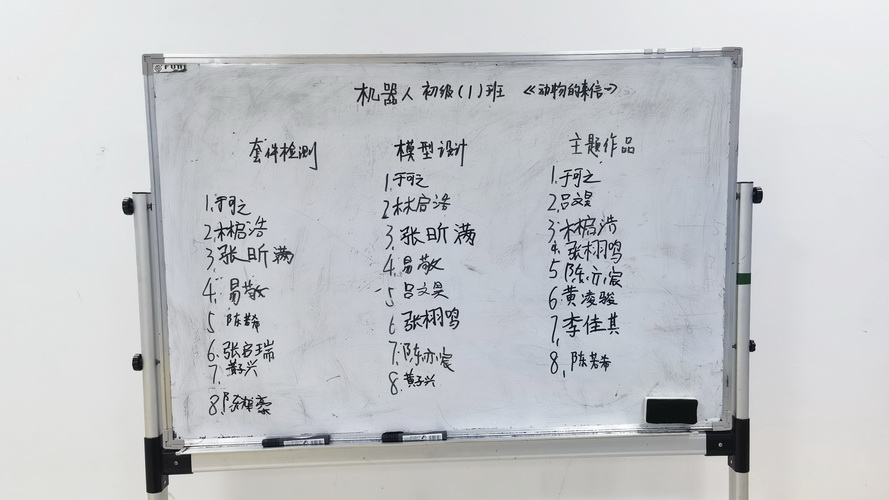 机器人 初级(1)班 《动物的来信一》
套件检测
1.于可之
2.林启浩
3.张昕满
4.易敬
5 陈若希
6.张启瑞
7.黄子兴
8.陈
模型设计
1.于可之
2林启浩
3.张昕满
4.易敬
5 吕文昊
6 张栩鸣
7.陈亦宸
8.黄子兴
主题作品
1.于可之
2.吕文昊
3林启浩
4.张栩鸣
5 陈亦宸
6黄凌骏
7.李佳其
8.陈若希